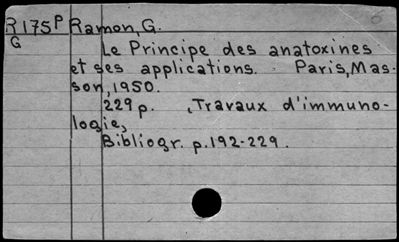 R175P Ramon, G.
G
Le Principe des anatoxines
et ses applications. Paris, Mas-
son, 1950.
229 p. , Travaux d'immuno-
logie,
Bibliogr. p. 192-229.